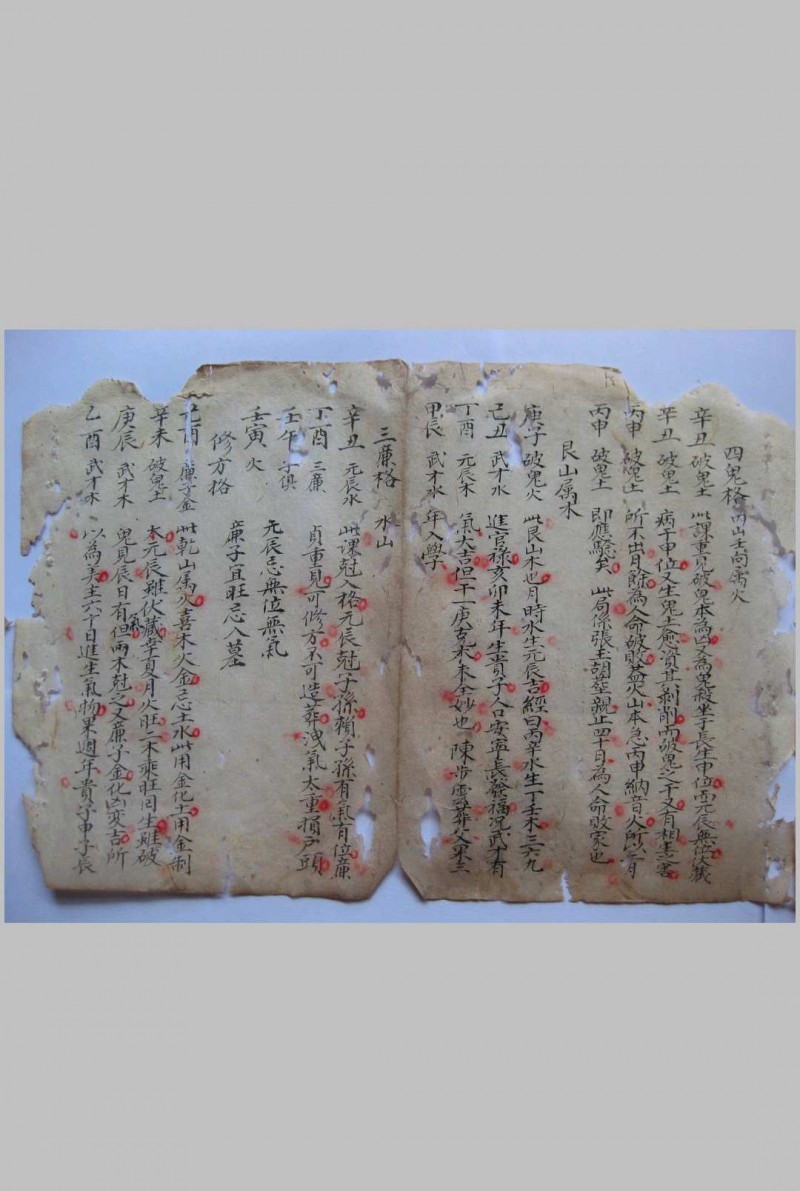 四鬼格 丙山壬向属火
辛丑 破鬼土 此課重見破鬼本為凶又為鬼殺坐子長生申位而元辰無位伏藏
辛丑 破鬼土 病于申位又生鬼土愈資其剝削而破鬼之干又有相生之害
丙申 破鬼土 所不出月餘為人命破敗蓋火山本急丙申納音火所以一月
丙申 破鬼土 即應驗矣 此局係張主朝塟親止四十日為人命敗家也
艮山属木
庚子 破鬼火 此艮山木也月時水生元辰吉經曰丙辛水生丁壬木三六九
己丑 武才水 進官祿亥卯未年生貴子人口安寧長發福况武才有
丁酉 元辰木 氣大吉但干一庚吉未全妙也 陳步雲葬父果三
甲辰 武才水 年入學
三廉格 水山
辛丑 元辰水 此課尅入格元辰尅子孫賴子孫有氣有位廉
丁酉 三廉 貞重見可修方不可造葬洩氣太重損戶頭
壬午 子俱 元辰忌無位無氣
壬寅 火 廉子宜旺忌入墓
修方格
己酉 廉子金 此乾山属火喜木火金忌土水此用金化土用金制
辛未 破鬼土 本元辰雖伏藏幸夏月火旺二木乘旺囘生雖破
庚辰 武才木 鬼見辰日有氣但兩木尅之又廉子金化凶变吉所
乙酉 武才木 以為美主六十日進生氣物果週年貴子申子辰